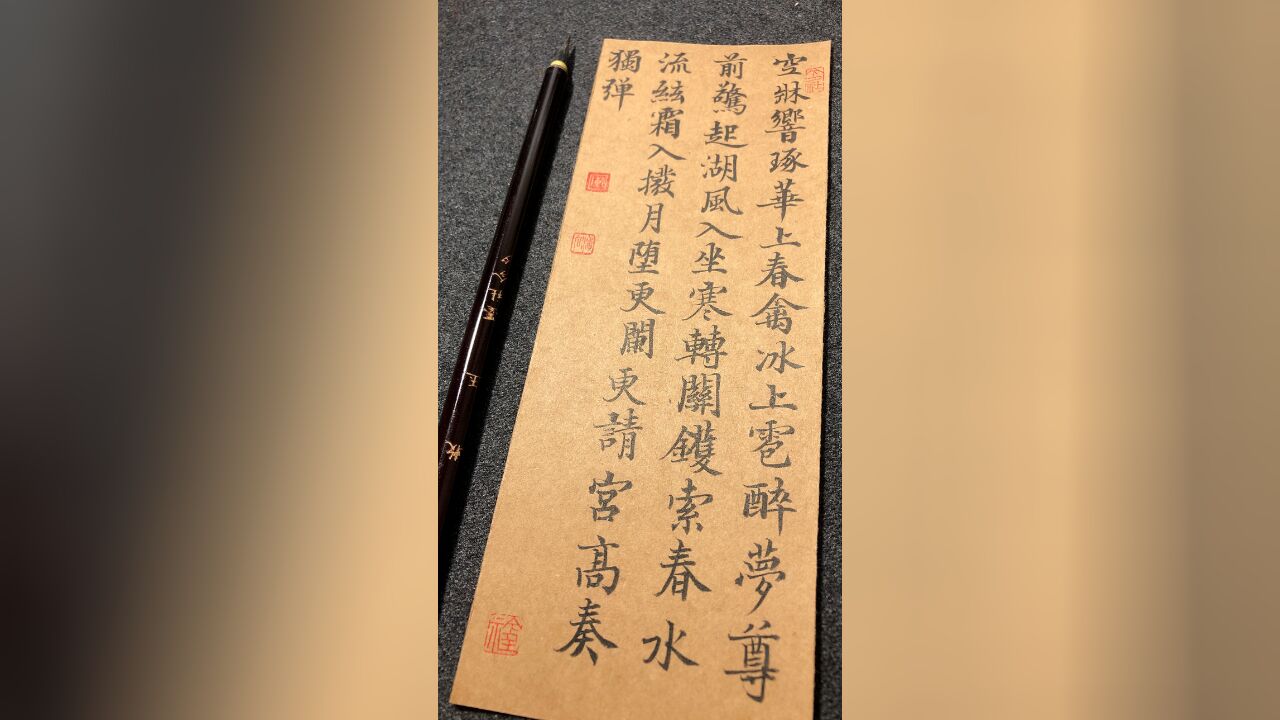 空牀響琢華上春禽冰上雹醉夢尊
前驚起湖風入坐寒轉關鑊索春水
流絃霜入撥月堕更闌更請宮高奏
獨弾